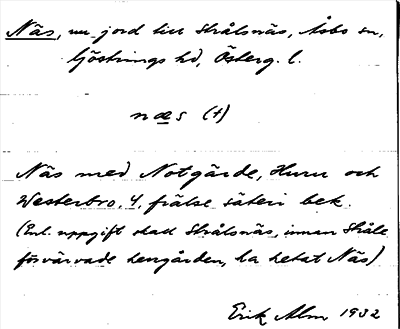 Näs, nu jord till Strålsnäs, Åsbo sn,
Göstrings hd, Österg. l.
næs (+)
Näs med Notgärde, Huru och
Westerbro, 4, frälse säteri bek.
(Enl. uppgift skad Strålsnäs, innan Stråle
förvärvade herrgården, ha hetat Näs)
Erik Alm 1932